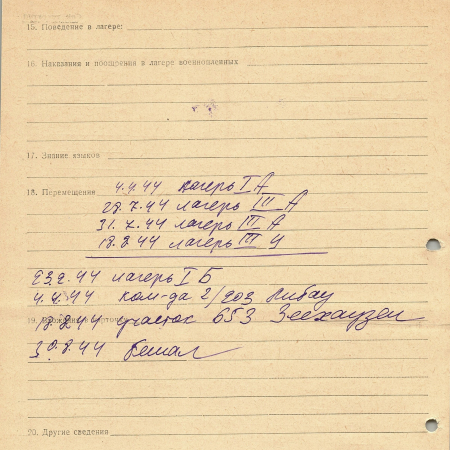 15. Поведение в лагере:
16. Наказания и поощрения в лагере военнопленных
17. Знание языков
18. Перемещение 4.4.44 лагерь I А
28.7.44 лагерь III А
31.7.44 лагерь III А
18.8.44 лагерь III Ц
23.2.44 лагерь I Б
4.4.44 ком-да 2/203 Либау
19.
18.8.44 участок 653 Зеехаузен
30.8.44 бежал
20. Другие сведения